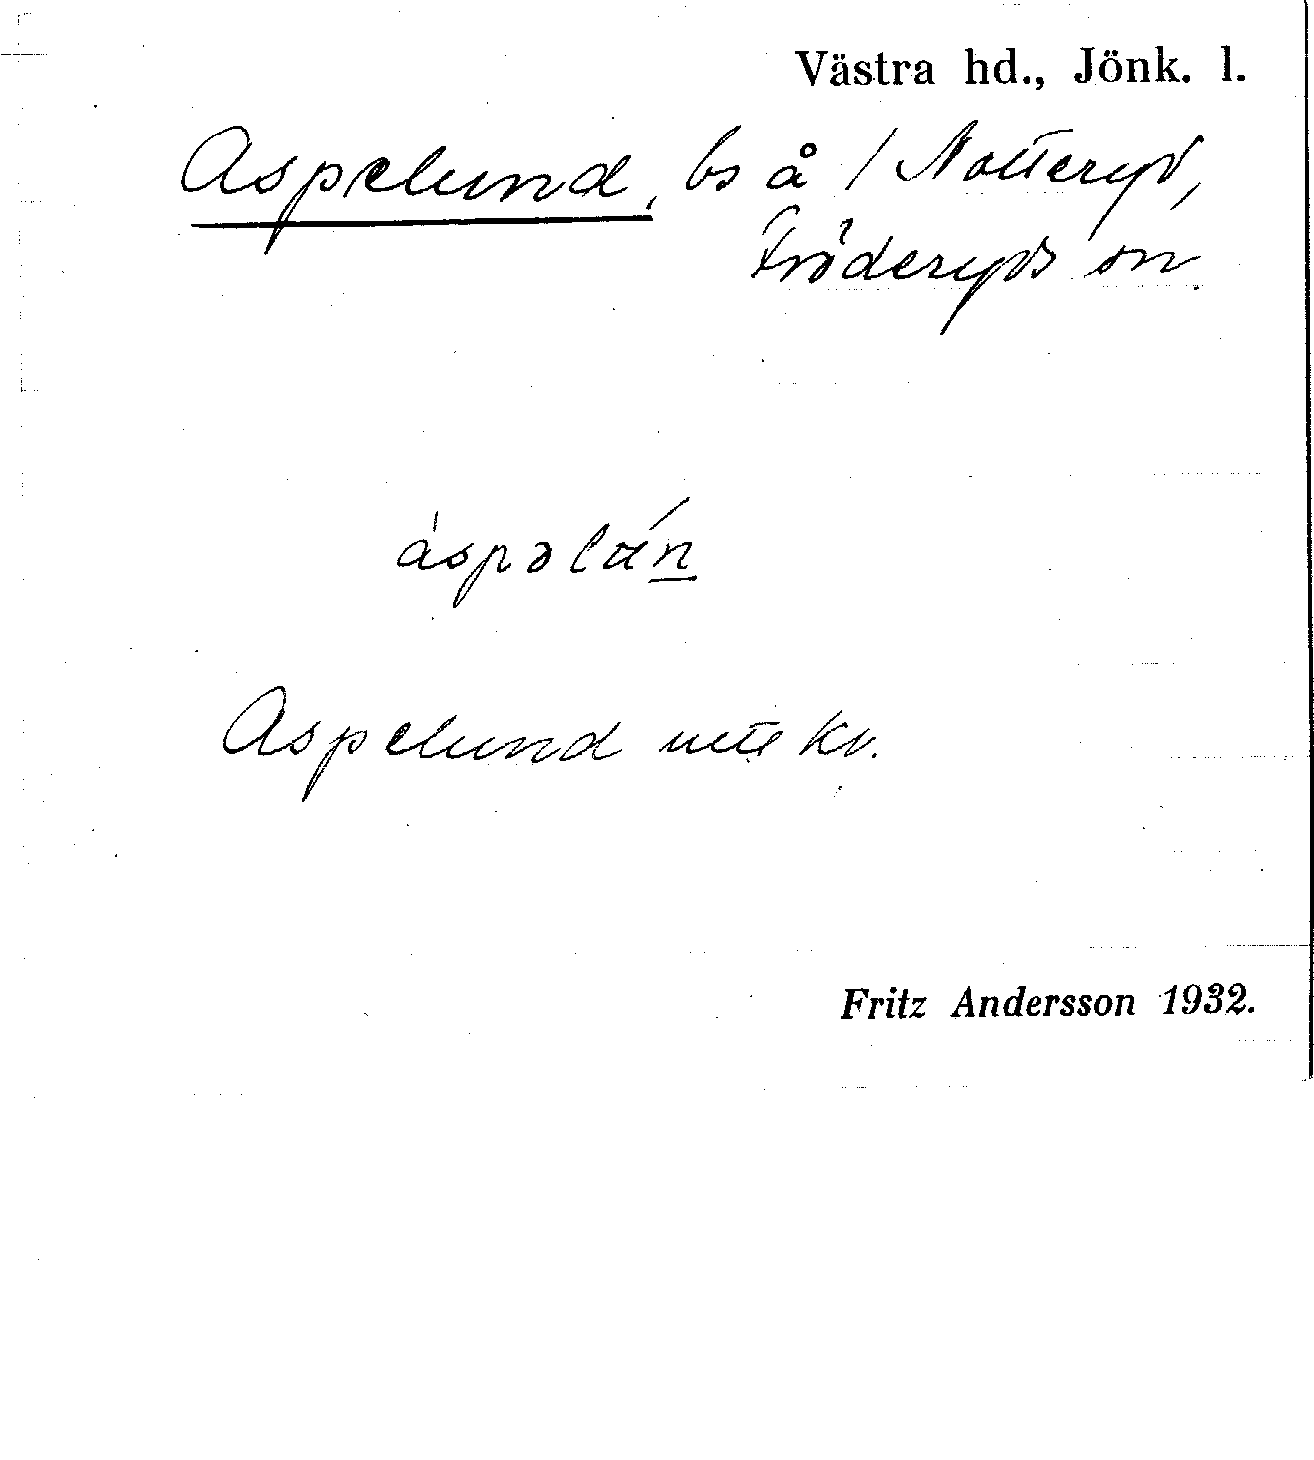 Västra hd., Jönk. l.
Aspelund, bs å / Notteryd,
Fröderyds sn.
áspəlán
Aspelund utt Kv.
Fritz Andersson 1932.